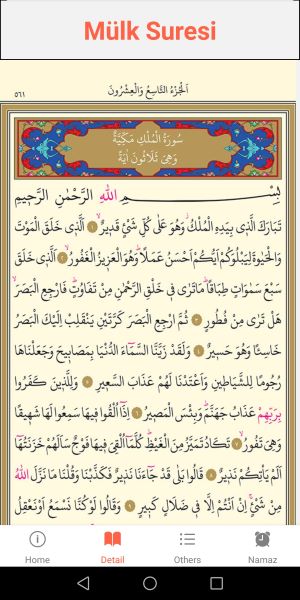 Mülk Suresi
اَلْجُزْءُ التَّاسِعُ وَالْعِشْرُونَ
٥٦١
سُورَةُ الْمُلْكِ مَكِّيَّةٌ
وَهِيَ ثَلَاثُونَ اٰيَةً
بِسْمِ اللّٰهِ الرَّحْمٰنِ الرَّحِيمِ
تَبَارَكَ الَّذِي بِيَدِهِ الْمُلْكُ وَهُوَ عَلٰى كُلِّ شَيْءٍ قَدِيرٌ ١ اَلَّذِي خَلَقَ الْمَوْتَ
وَالْحَيٰوةَ لِيَبْلُوَكُمْ اَيُّكُمْ اَحْسَنُ عَمَلًا وَهُوَ الْعَزِيزُ الْغَفُورُ ٢ اَلَّذِي خَلَقَ
سَبْعَ سَمٰوَاتٍ طِبَاقًا مَا تَرٰى فِي خَلْقِ الرَّحْمٰنِ مِنْ تَفَاوُتٍ فَارْجِعِ الْبَصَرَ
هَلْ تَرٰى مِنْ فُطُورٍ ٣ ثُمَّ ارْجِعِ الْبَصَرَ كَرَّتَيْنِ يَنْقَلِبْ اِلَيْكَ الْبَصَرُ
خَاسِئًا وَهُوَ حَسِيرٌ ٤ وَلَقَدْ زَيَّنَّا السَّمَاءَ الدُّنْيَا بِمَصَابِيحَ وَجَعَلْنَاهَا
رُجُومًا لِلشَّيَاطِينِ وَاَعْتَدْنَا لَهُمْ عَذَابَ السَّعِيرِ ٥ وَلِلَّذِينَ كَفَرُوا
بِرَبِّهِمْ عَذَابُ جَهَنَّمَ وَبِئْسَ الْمَصِيرُ ٦ اِذَا اُلْقُوا فِيهَا سَمِعُوا لَهَا شَهِيقًا
وَهِيَ تَفُورُ ٧ تَكَادُ تَمَيَّزُ مِنَ الْغَيْظِ كُلَّمَا اُلْقِيَ فِيهَا فَوْجٌ سَاَلَهُمْ خَزَنَتُهَا
اَلَمْ يَاْتِكُمْ نَذِيرٌ ٨ قَالُوا بَلٰى قَدْ جَاءَنَا نَذِيرٌ فَكَذَّبْنَا وَقُلْنَا مَا نَزَّلَ اللّٰهُ
مِنْ شَيْءٍ اِنْ اَنْتُمْ اِلَّا فِي ضَلَالٍ كَبِيرٍ ٩ وَقَالُوا لَوْ كُنَّا نَسْمَعُ اَوْ نَعْقِلُ
Home Detail Others Namaz